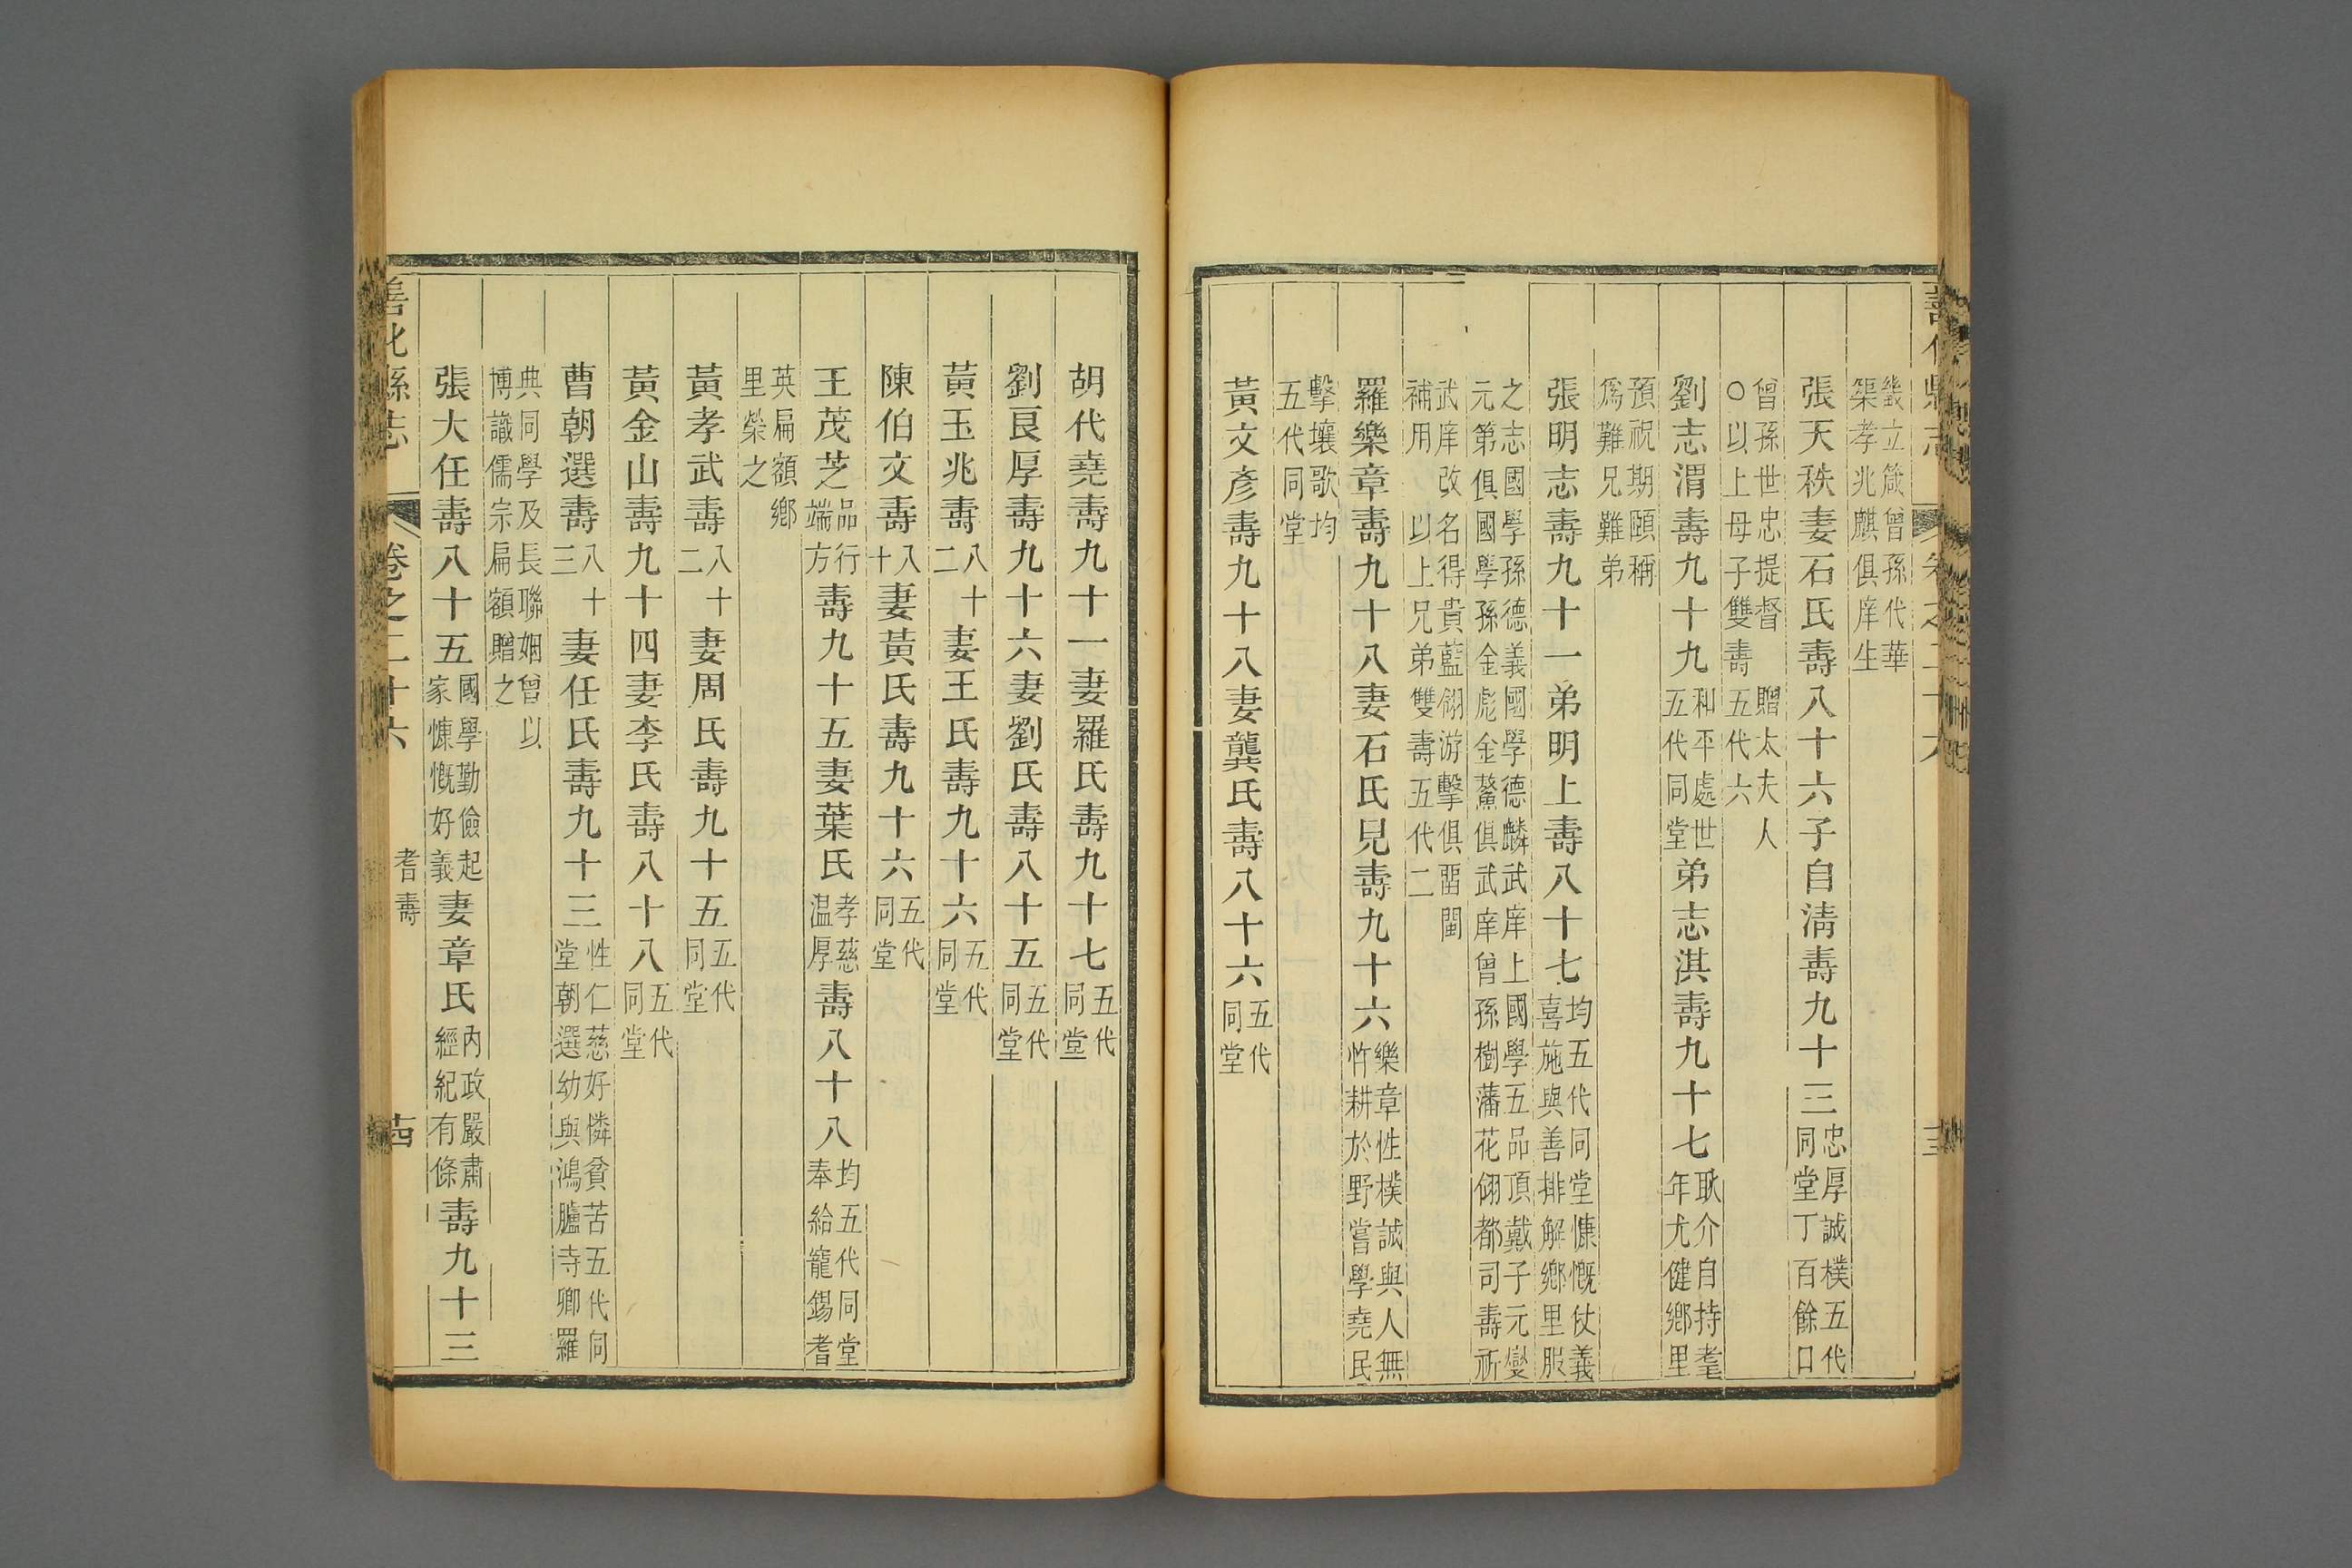 善化縣志 卷之二十六 十三
幾立箴曾孫代華
榘孝兆麒俱庠生
張天秩妻石氏壽八十六子自淸壽九十三忠厚誠樸五代同堂丁百餘口
曾孫世忠提督 贈太夫人
○以上母子雙壽五代六
劉志渭壽九十九和平處世五代同堂弟志淇壽九十七耿介自持耄年尤健鄉里
預祝期頤稱
爲難兄難弟
張明志壽九十一弟明上壽八十七均五代同堂慷慨仗義喜施與善排解鄉里服
之志國學孫德義國學德麟武庠上國學五品頂戴子元燮
元第俱國學孫金彪金鰲俱武庠曾孫樹藩花翎都司壽祈
武庠改名得貴藍翎游擊俱畱閩
補用 以上兄弟雙壽五代二
羅樂章壽九十八妻石氏兒壽九十六樂章性樸誠與人無忤耕於野嘗學堯民
擊壤歌均
五代同堂
黃文彥壽九十八妻龔氏壽八十六五代同堂
胡代堯壽九十一妻羅氏壽九十七五代同堂
劉艮厚壽九十六妻劉氏壽八十五五代同堂
黃玉兆壽八十二妻王氏壽九十六五代同堂
陳伯文壽八十妻黃氏壽九十六五代同堂
王茂芝品行端方壽九十五妻葉氏孝慈温厚壽八十八均五代同堂奉給籠錫耆
英扁額鄉
里榮之
黃孝武壽八十二妻周氏壽九十五五代同堂
黃金山壽九十四妻李氏壽八十八五代同堂
曹朝選壽八十三妻任氏壽九十三性仁慈好憐貧苦五代同堂朝選幼與鴻臚寺卿羅
典同學及長聯姻曾以
博識儒宗扁額贈之
張大任壽八十五國學勤儉起家慷慨好義妻章氏內政嚴肅經紀有條壽九十三
善化縣志 卷之二十六 耆壽 十四